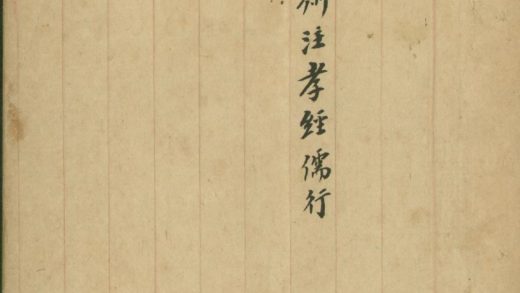 注孝經儒行